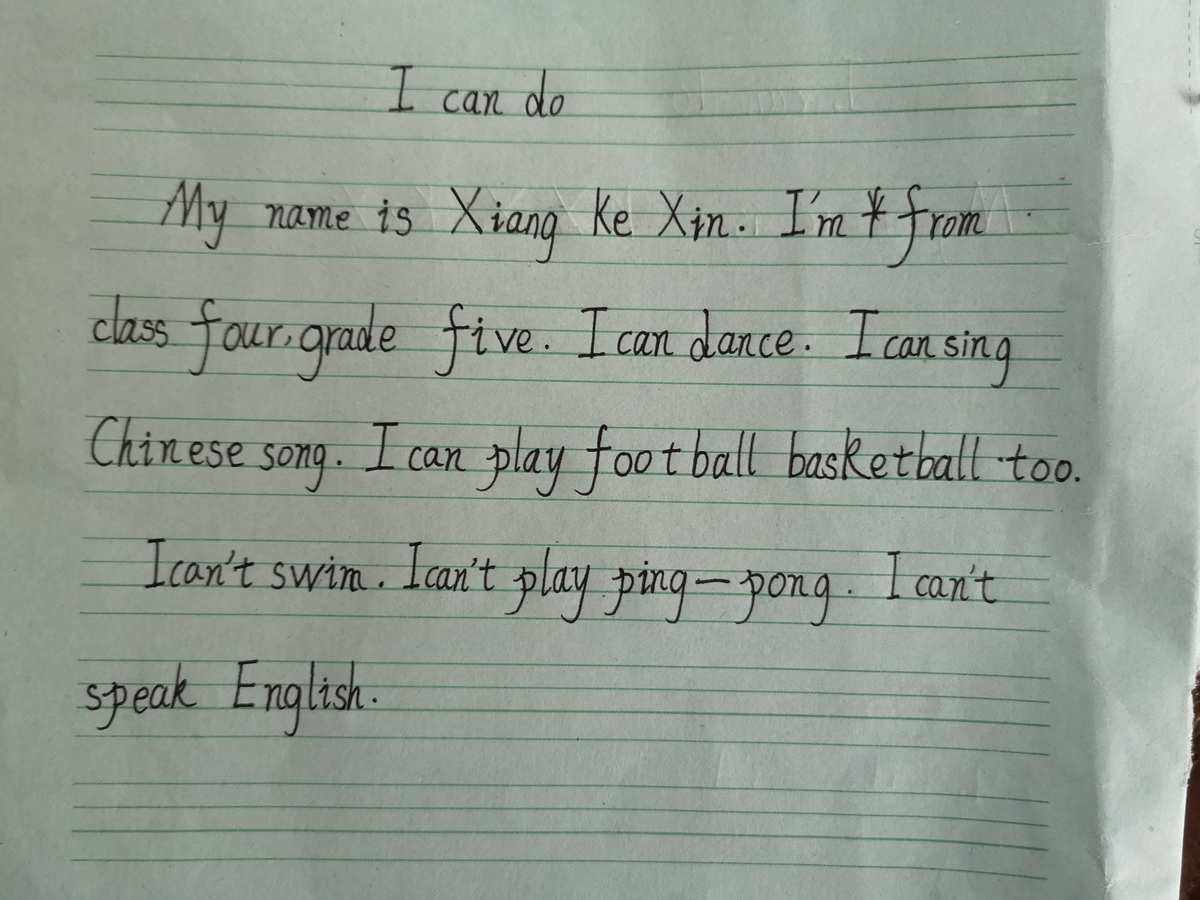 I can do
My name is Xiang Ke Xin. I'm from
class four, grade five. I can dance. I can sing
Chinese song. I can play football basketball too.
I can't swim. I can't play ping-pong. I can't
speak English.